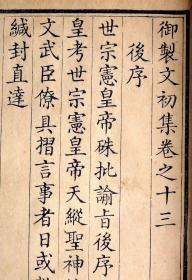 御製文初集卷之十三
後序
世宗憲皇帝硃批諭旨後序
皇考世宗憲皇帝天縱聖神
文武臣僚具摺言事者日或
緘封直達